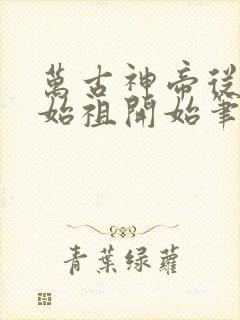 萬古神帝從
始祖開始筆
青葉绿蘿